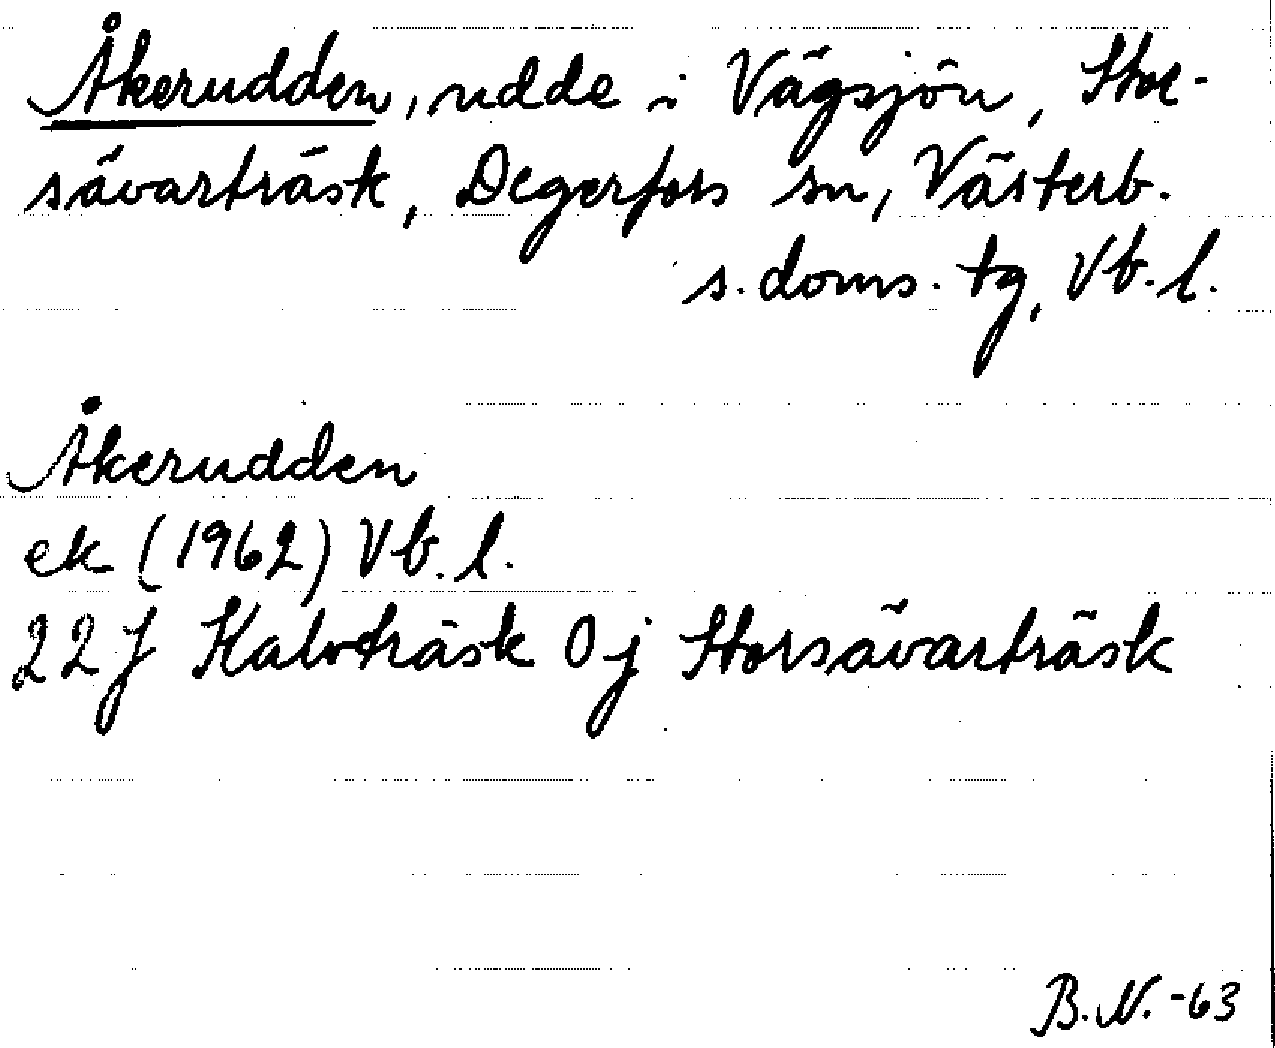 Åkerudden, udde i Vägsjön, Stor-
sävarträsk, Degerfors sn, Västerb.
s. doms. tg, Vb. l.
Åkerudden
ek (1962) Vb. l.
22 J Kalvträsk 0 j Storsävarträsk
B. N. -63